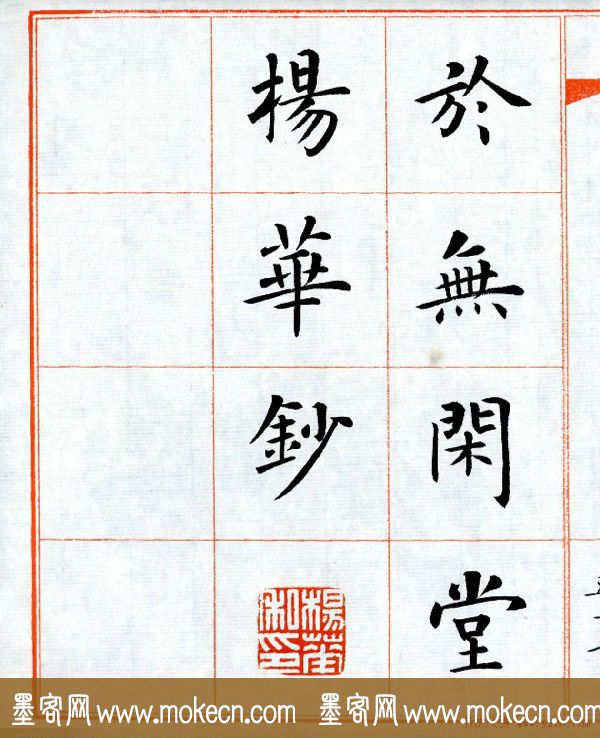 於無閑堂
楊華鈔
楊華私印
墨客网 www.mokecn.com 墨客网 www.mokecn.com